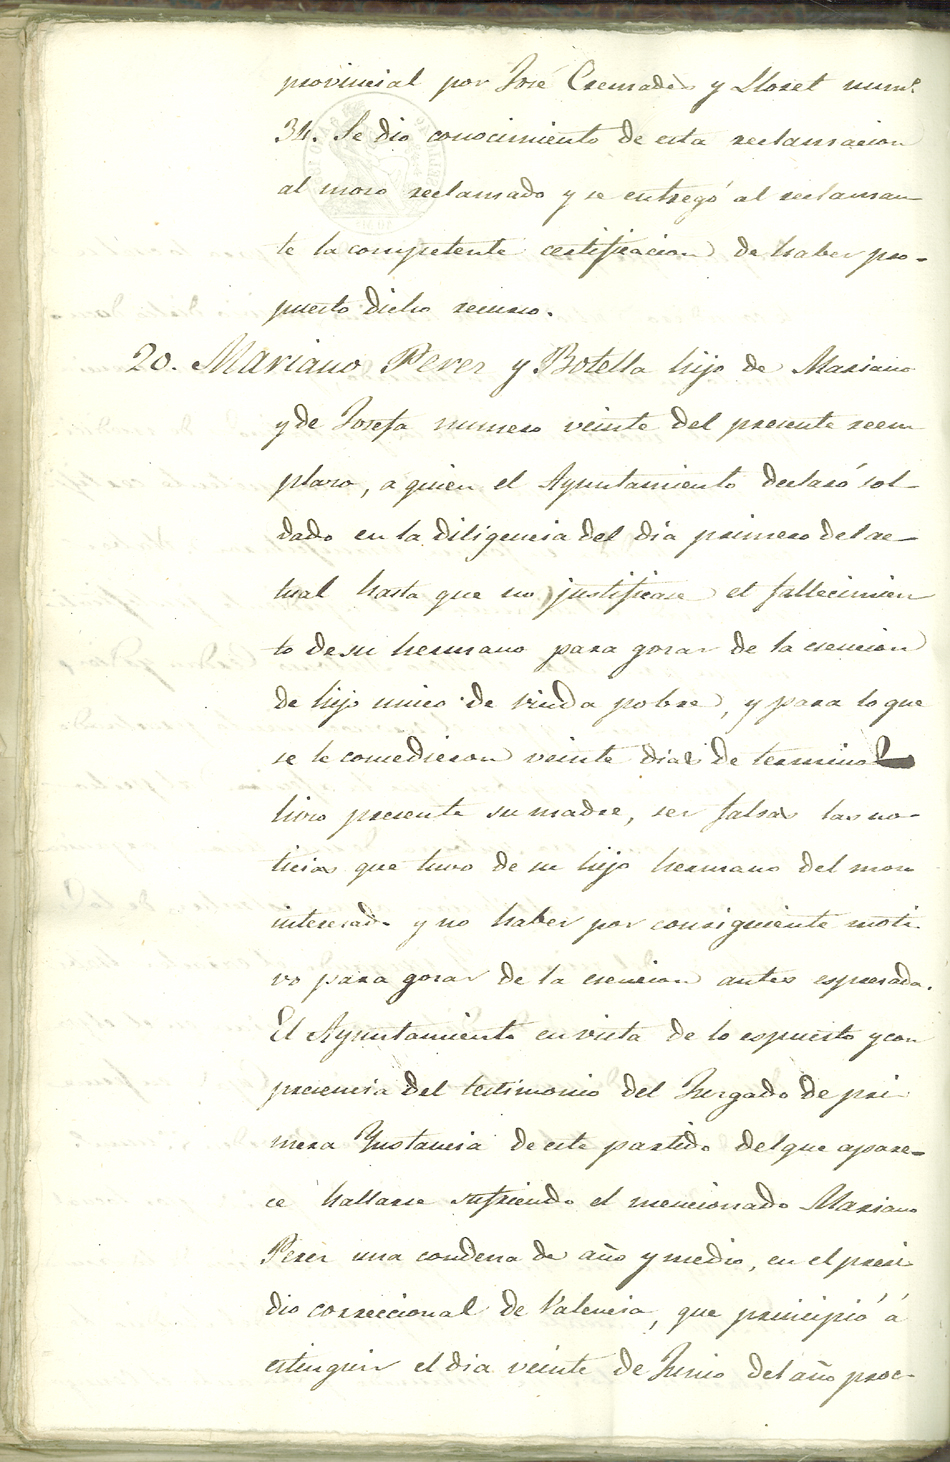 provincial por José Cremades y Lloret num.º
34. Se dio conocimiento de esta reclamacion
al moso reclamado y se entregó al reclaman-
te la competente certificacion de haber pro-
puesto dicho recurso.
20. Mariano Perez y Botella hijo de Mariano
y de Josefa numero veinte del presente reem
plazo, a quien el Ayuntamiento declaró sol-
dado en la diligencia del dia primero del ac-
tual hasta que no justificase el fallecimien
to de su hermano para gozar de la esencion
de hijo unico de viuda pobre, y para lo que
se le concedieron veinte dias de termino
hizo presente su madre, ser falsas las no-
ticias que tuvo de su hijo hermano del mozo
interesado y no haber por consiguiente moti-
vo para gozar de la esencion antes espresada.
El Ayuntamiento en vista de lo espuesto y con
presencia del testimonio del Juzgado de pri
mera Ynstancia de este partido del que apare-
ce hallarse sufriendo el mencionado Mariano
Perez una condena de año y medio, en el presi
dio correccional de Valencia, que principió á
estinguir el dia veinte de Junio del año proc-